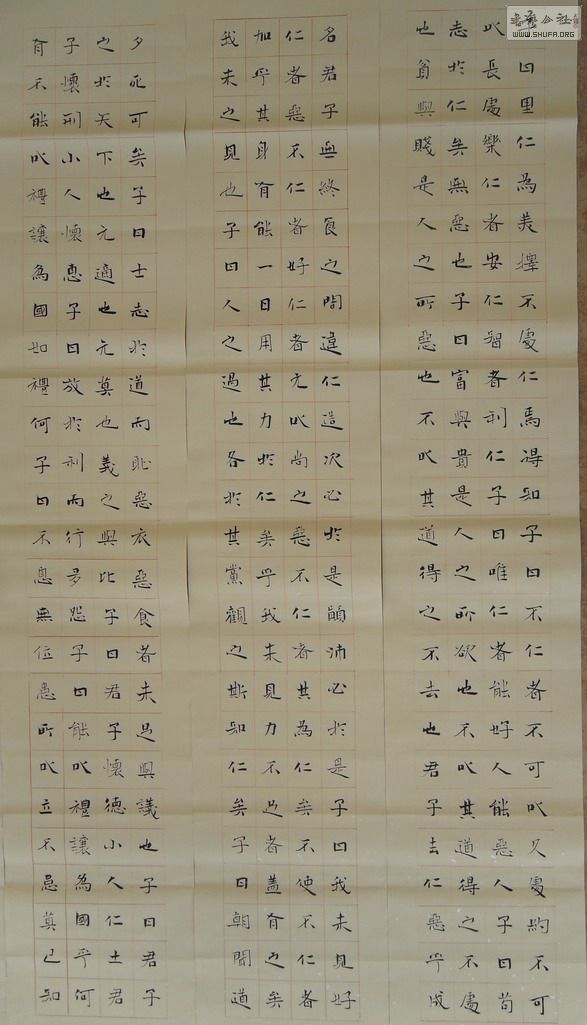 曰里仁為美擇不處仁焉得知子曰不仁者不可以久處約不可
以長處樂仁者安仁智者利仁子曰唯仁者能好人能惡人子曰苟
志於仁矣無惡也子曰富與貴是人之所欲也不以其道得之不處
也貧與賤是人之所惡也不以其道得之不去也君子去仁惡乎成
名君子無終食之間違仁造次必於是顛沛必於是子曰我未見好
仁者惡不仁者好仁者无以尚之惡不仁者其為仁矣不使不仁者
加乎其身有能一日用其力於仁矣乎我未見力不足者蓋有之矣
我未之見也子曰人之過也各於其黨觀之斯知仁矣子曰朝聞道
夕死可矣子曰士志於道而恥惡衣惡食者未足與議也子曰君子
之於天下也无適也无莫也義之與比子曰君子懷德小人仁土君
子懷刑小人懷惠子曰放於利而行多怨子曰能以禮讓為國乎何
有不能以禮讓為國如禮何子曰不患無位患所以立不患莫己知
WWW.SHUFA.ORG